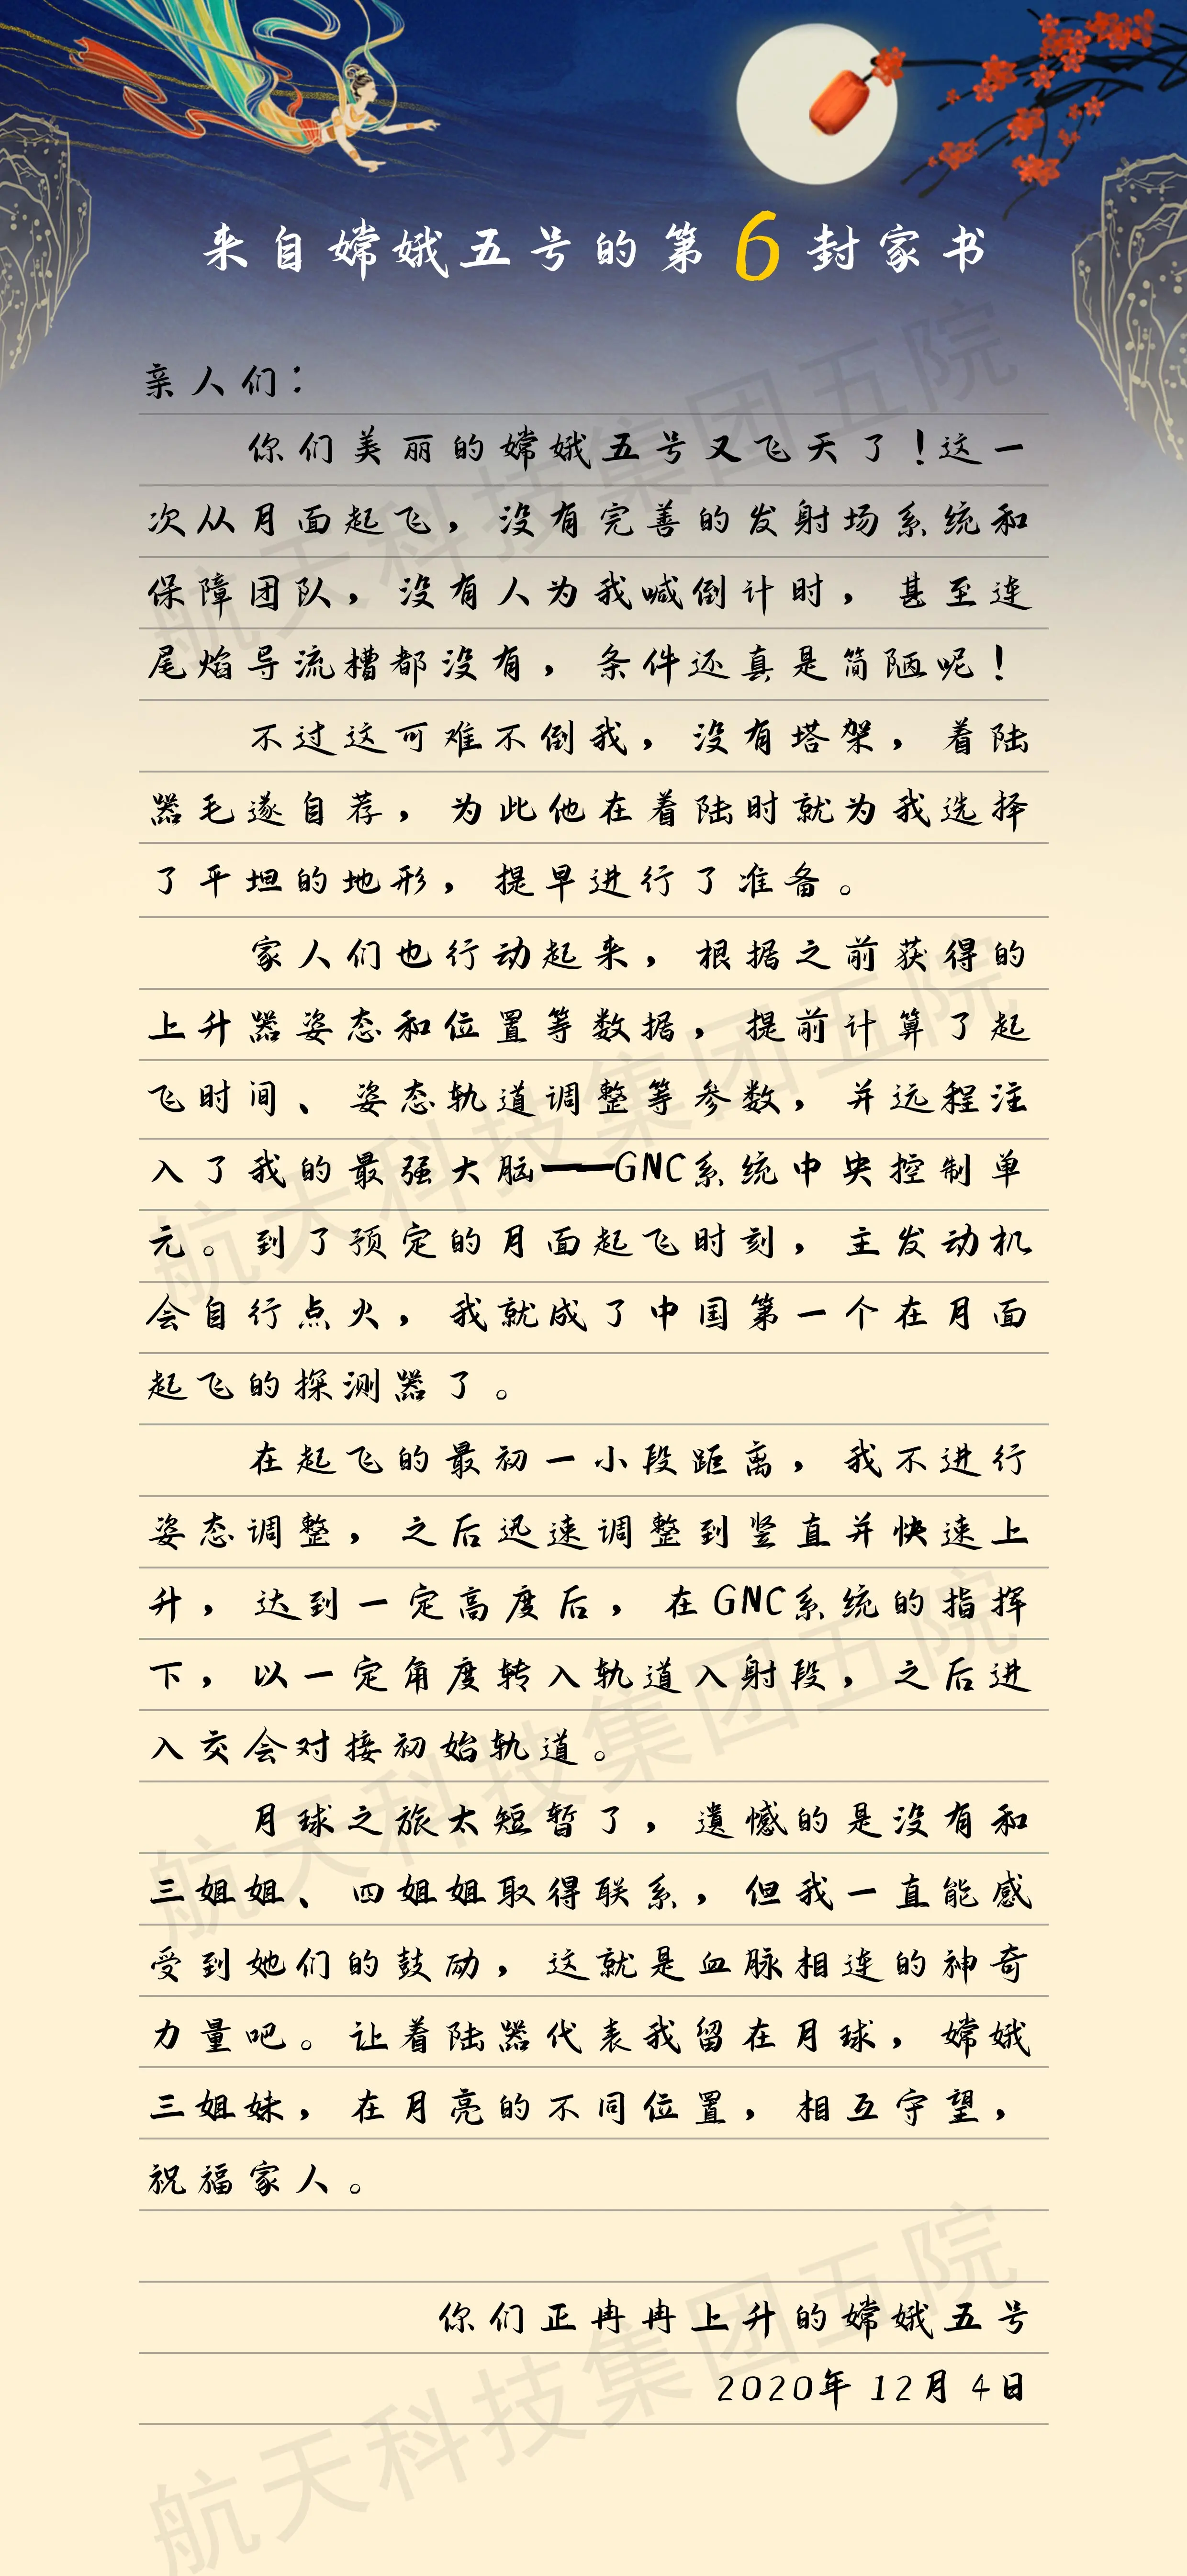 来自嫦娥五号的第6封家书
亲人们：
你们美丽的嫦娥五号又飞天了！这一
次从月面起飞，没有完善的发射场系统和
保障团队，没有人为我喊倒计时，甚至连
尾焰导流槽都没有，条件还真是简陋呢！
不过这可难不倒我，没有塔架，着陆
器毛遂自荐，为此他在着陆时就为我选择
了平坦的地形，提早进行了准备。
家人们也行动起来，根据之前获得的
上升器姿态和位置等数据，提前计算了起
飞时间、姿态轨道调整等参数，并远程注
入了我的最强大脑——GNC系统中央控制单
元。到了预定的月面起飞时刻，主发动机
会自行点火，我就成了中国第一个在月面
起飞的探测器了。
在起飞的最初一小段距离，我不进行
姿态调整，之后迅速调整到竖直并快速上
升，达到一定高度后，在GNC系统的指挥
下，以一定角度转入轨道入射段，之后进
入交会对接初始轨道。
月球之旅太短暂了，遗憾的是没有和
三姐姐、四姐姐取得联系，但我一直能感
受到她们的鼓励，这就是血脉相连的神奇
力量吧。让着陆器代表我留在月球，嫦娥
三姐妹，在月亮的不同位置，相互守望，
祝福家人。
你们正冉冉上升的嫦娥五号
2020年12月4日
航天科技集团五院
航天科技集团五院
航天科技集团五院
航天科技集团五院